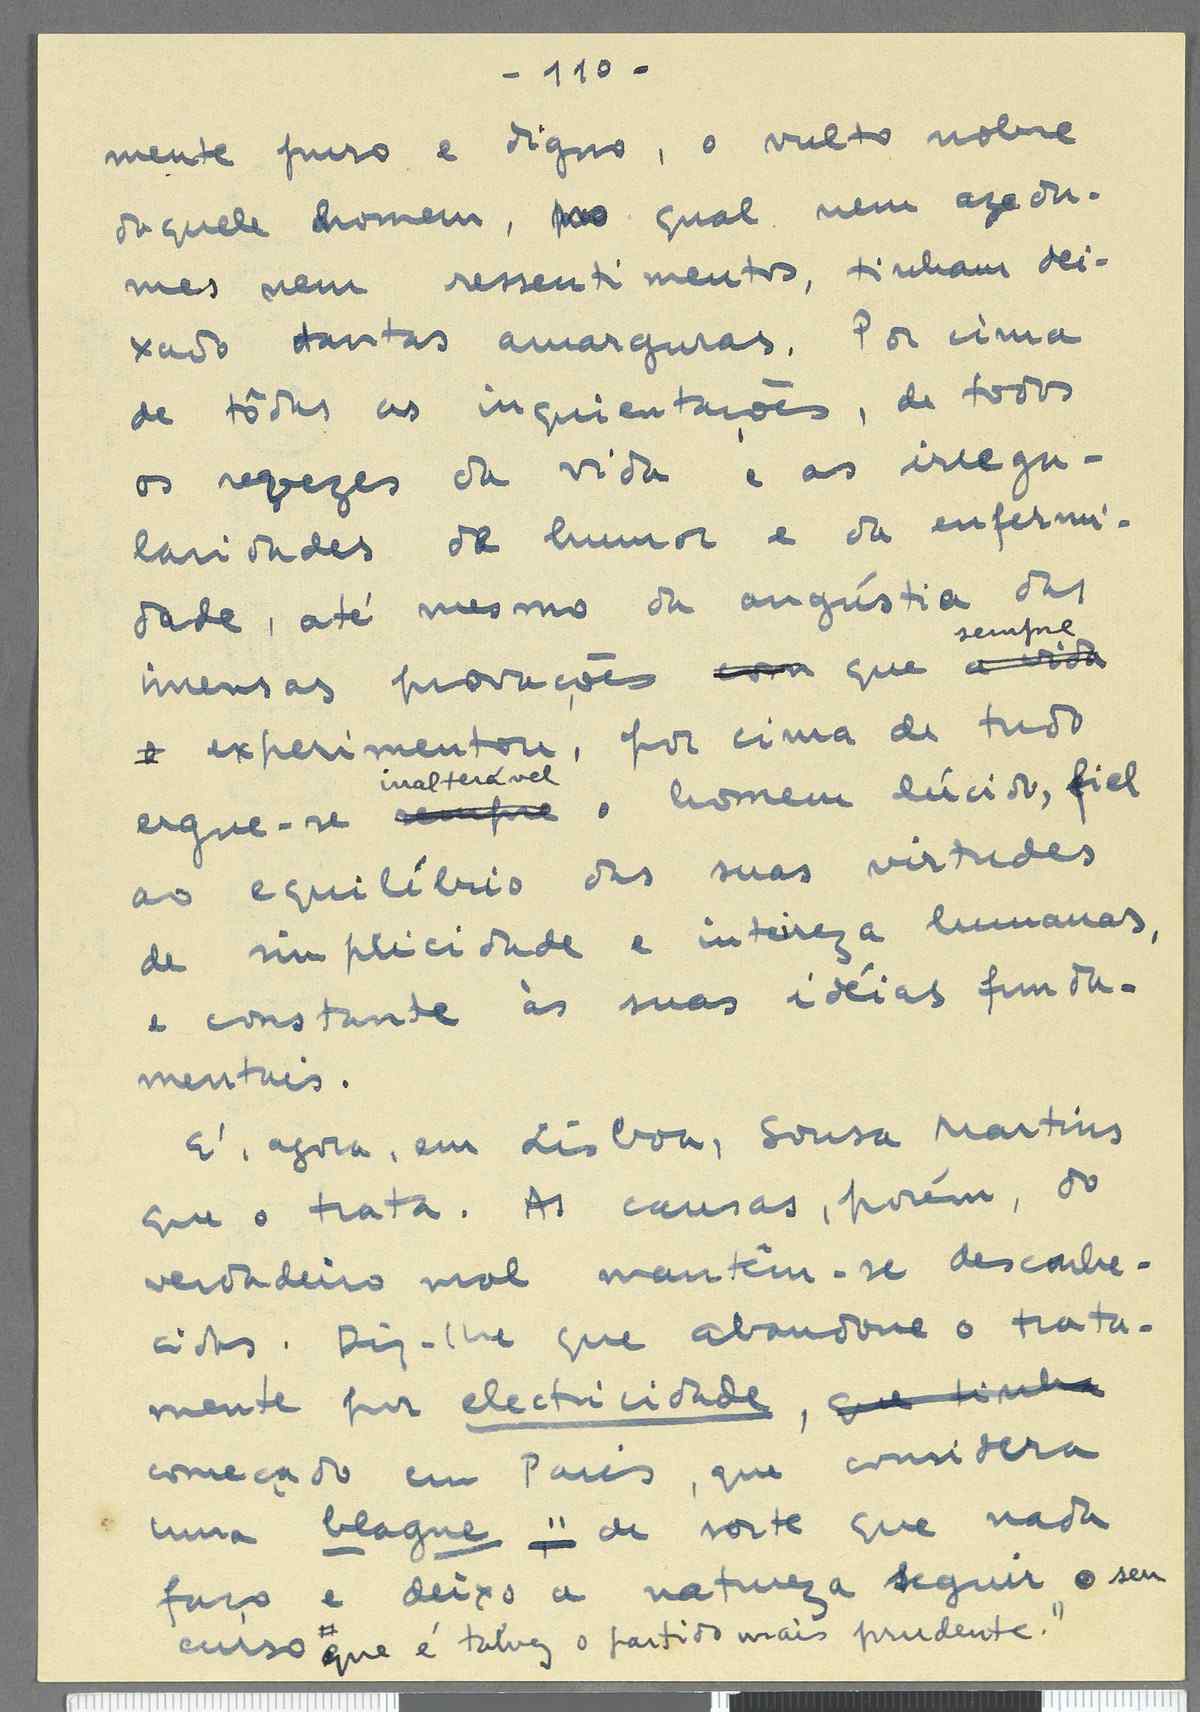 - 110 -
mente puro e digno, o vulto nobre
daquele homem, no qual nem azedu-
mes nem ressentimentos, tinham dei-
xado tantas amarguras. Por cima
de tôdas as inquientações, de todos
os revezes da vida e as irregu-
laridades de humor e da enfermi-
dade, até mesmo da angústia das
sempre
imensas provações com que a vida
o experimentou, por cima de tudo
inalterável
ergue-se sempre o homem lúcido, fiel
ao equilíbrio das suas virtudes
de simplicidade e inteireza humanas,
e constante às suas idéias funda-
mentais.
É, agora, em Lisboa, Sousa Martins
que o trata. As causas, porém, do
verdadeiro mal mantêm-se desconhe-
cidas. Diz-lhe que abandone o trata-
mento por electricidade, que tinha
começado em Paris, que considera
uma blague " de sorte que nada
faço e deixo a natureza seguir o seu
curso que é talvez o partido mais prudente."